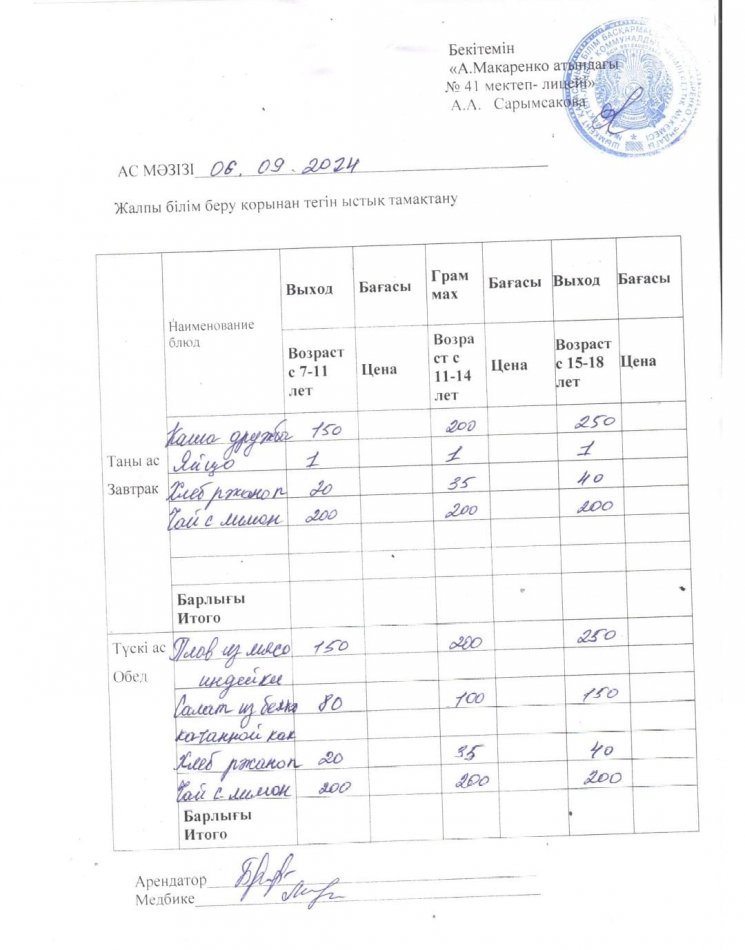 Бекітемін
«А.Макаренко атындағы
№ 41 мектеп- лицейі»
А.А. Сарымсакова
АС МӘЗІЗІ 06.09.2024
Жалпы білім беру қорынан тегін ыстық тамақтану
Наименование блюд
Выход Бағасы Грам мах Бағасы Выход Бағасы
Возраст с 7-11 лет Цена Возра ст с 11-14 лет Цена Возраст с 15-18 лет Цена
Таны ас
Завтрак
Каша дружба 150 200 250
Яйцо 1 1 1
Хлеб ржаной 20 35 40
Чай с лимон 200 200 200
Барлығы
Итого
Түскі ас
Обед
Плов из мясо 150 200 250
индейки
Салат из 80 100 150
Хлеб ржаной 20 35 40
Чай с лимон 200 200 200
Барлығы
Итого
Арендатор
Медбике